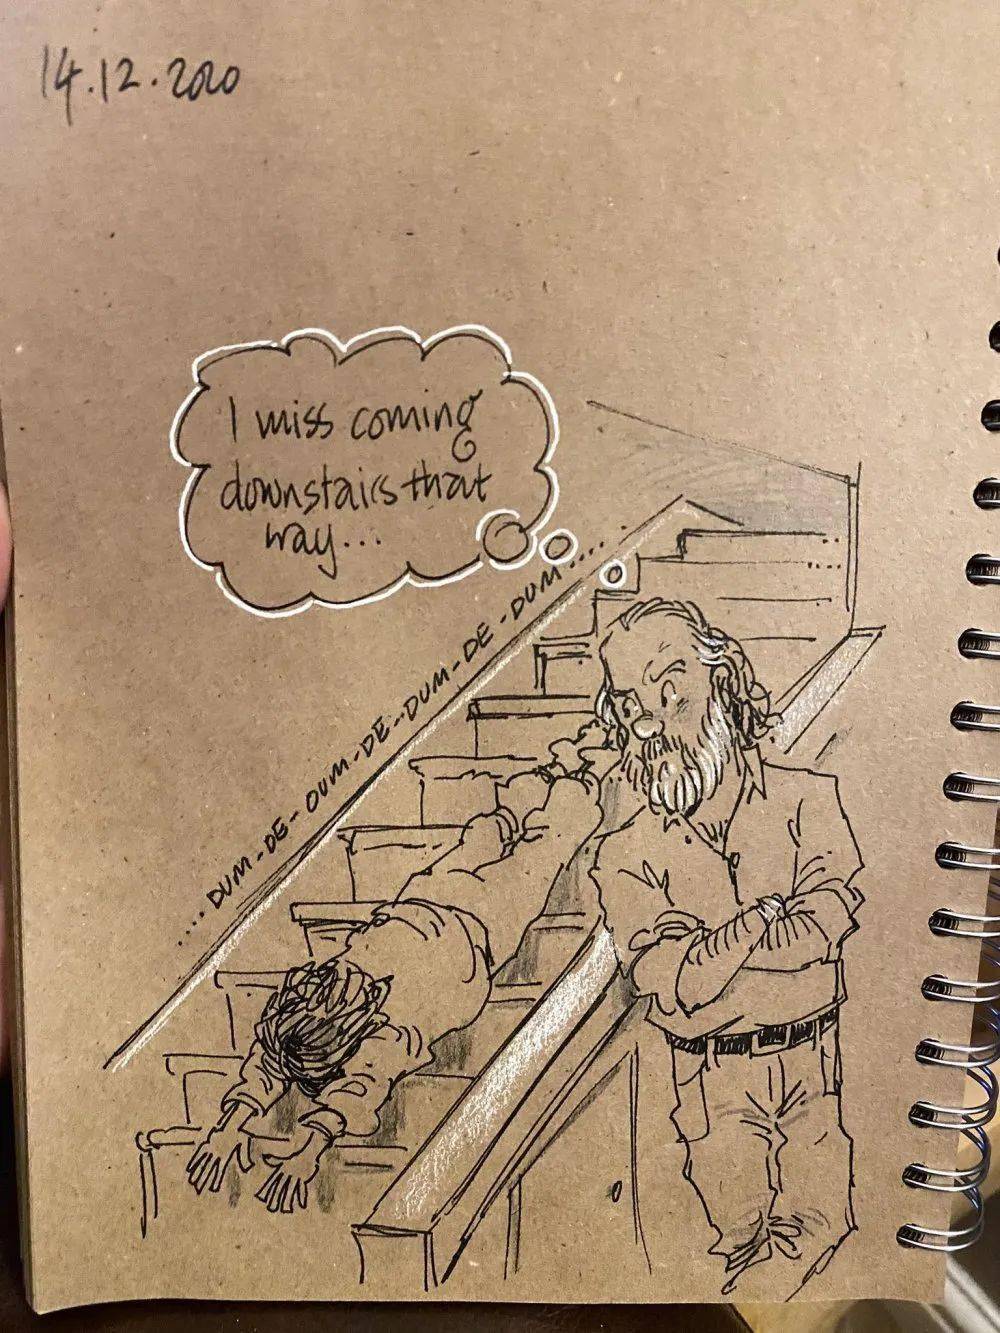 14.12.2020
I miss coming
downstairs that
way...
...DUM-DE-DUM-DE-DUM-DE-DUM...